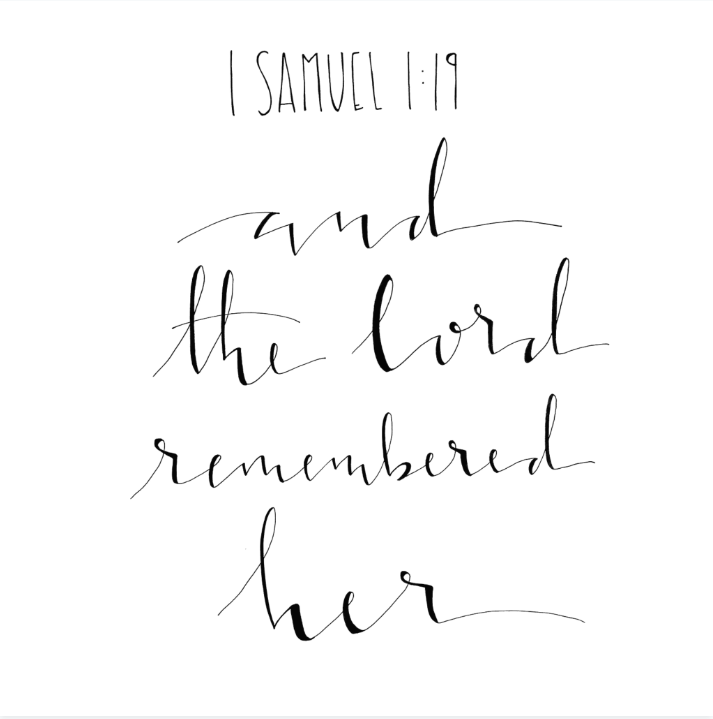 1 SAMUEL 1:19
and
the lord
remembered
her